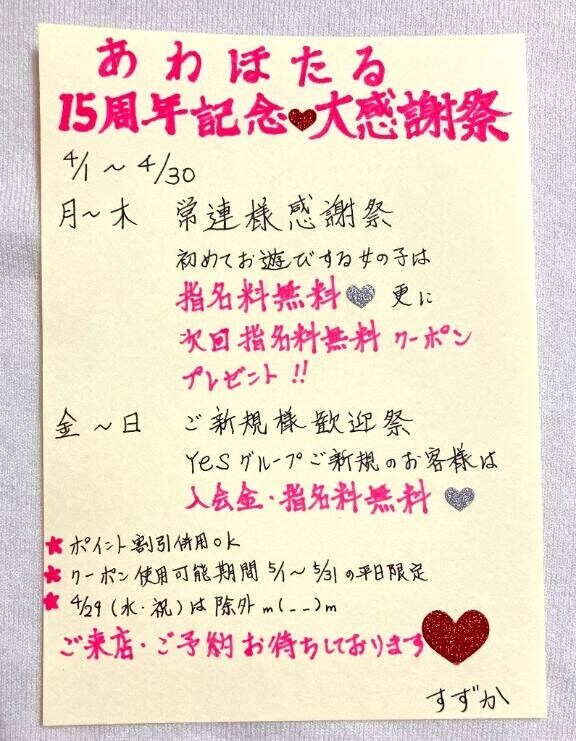 あわほたる
15周年記念♥大感謝祭
4/1～4/30
月～木 常連様感謝祭
初めてお遊びする女の子は
指名料無料♥更に
次回指名料無料クーポン
プレゼント!!
金～日 ご新規様歓迎祭
yesグループご新規のお客様は
入会金・指名料無料♥
★ポイント割引併用OK
★クーポン使用可能期間5/1～5/31の平日限定
★4/29(水・祝)は除外m(__)m
ご来店・ご予約お待ちしております♥
すずか